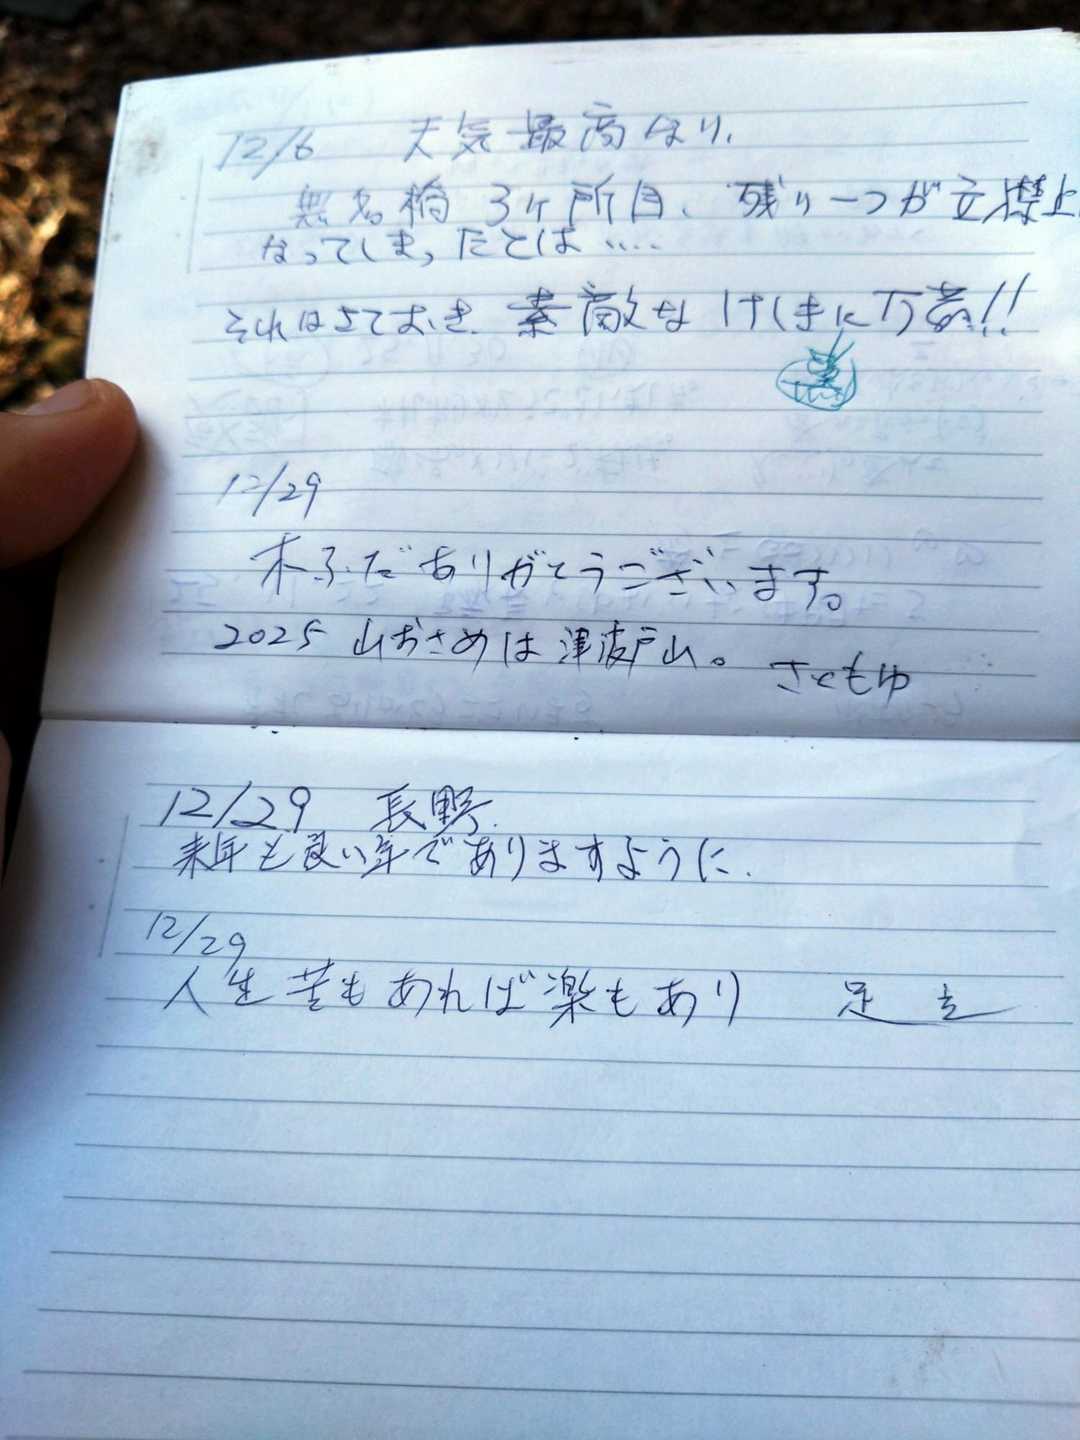 12/6 天気最高なり.
無名橋 3ヶ所目、残り一つが立禁止
なってしまったとは……
それはさておき、素敵な けしきに万歳!!
12/29
木ふだありがとうございます。
2025 山おさめは津波戸山。 さともゆ
12/29 長野.
来年も良い年でありますように.
12/29
人生苦もあれば楽もあり 足立